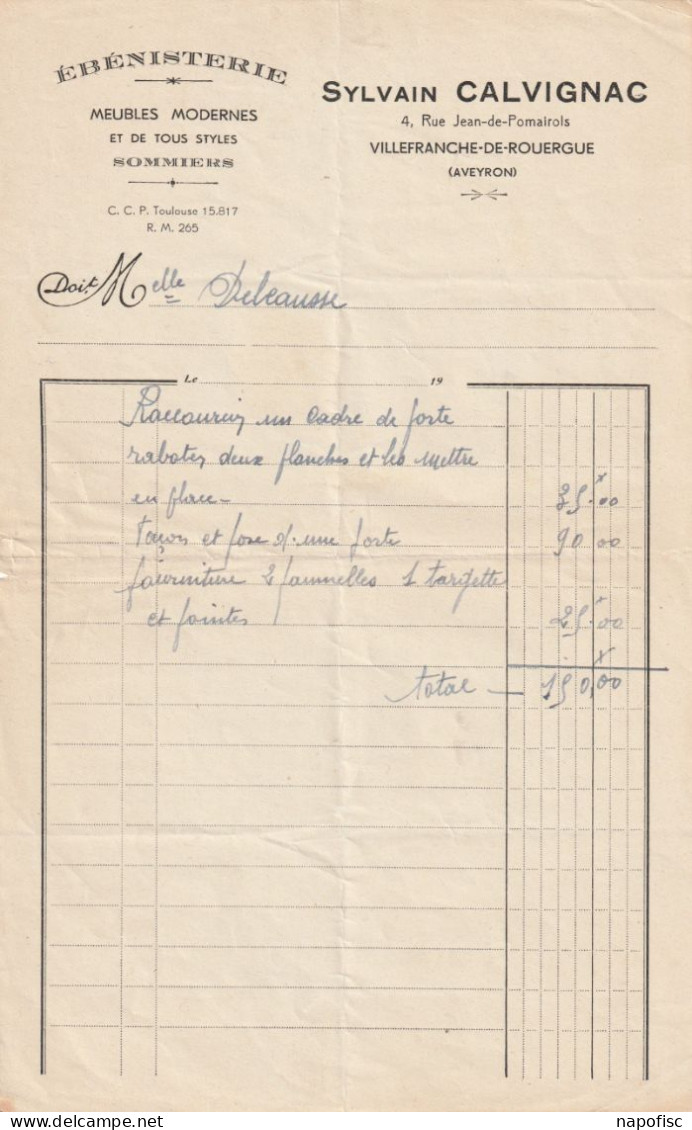 ÉBÉNISTERIE
MEUBLES MODERNES
ET DE TOUS STYLES
SOMMIERS
C. C. P. Toulouse 15.817
R. M. 265
SYLVAIN CALVIGNAC
4, Rue Jean-de-Pomairols
VILLEFRANCHE-DE-ROUERGUE
(AVEYRON)
Doit Melle Delcausse
Le 19
Raccourcir un cadre de porte
raboter deux planches et les mettre
en place - 35.00
Façon et pose d'une porte 90 00
fourniture 2 paumelles 1 targette
et pointes 25.00
total - 150,00
napofisc